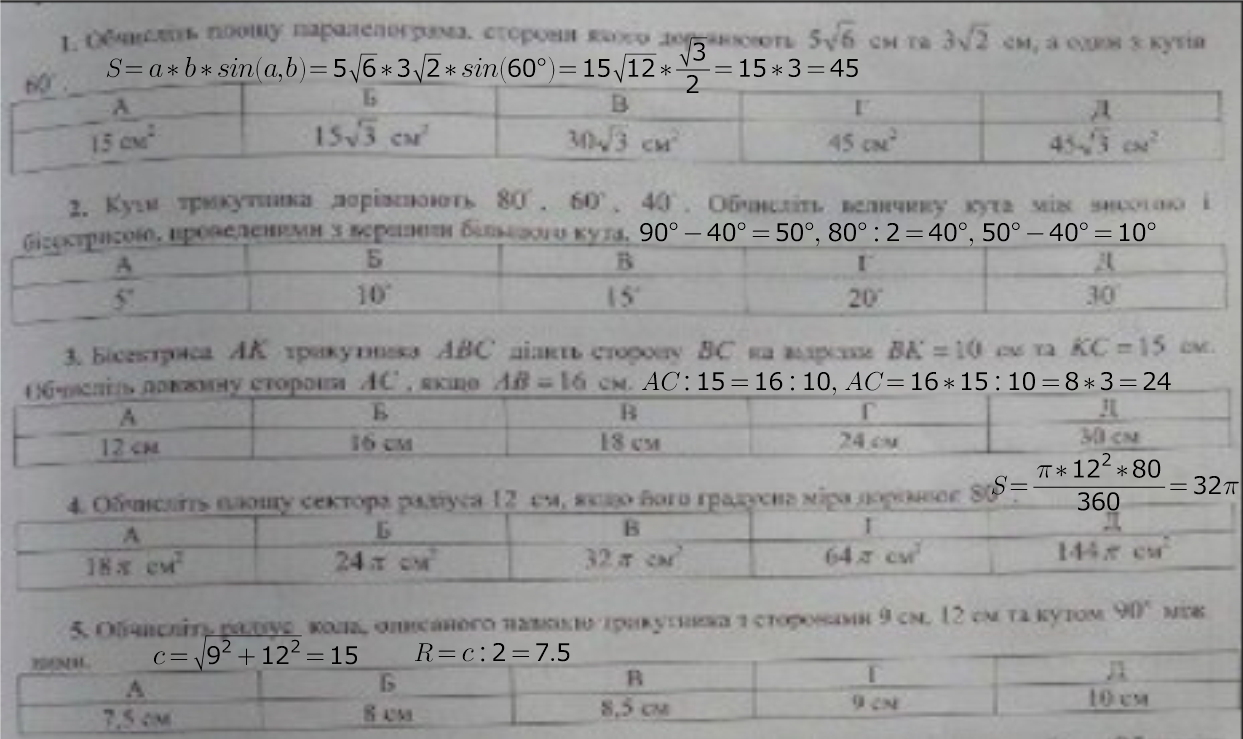 1. Обчисліть площу паралелограма, сторони якого дорівнюють 5√6 см та 3√2 см, а один з кутів
60°. S=a*b*sin(a,b)=5√6*3√2*sin(60°)=15√12*√3/2=15*3=45
А Б В Г Д
15 см² 15√3 см² 30√3 см² 45 см² 45√3 см²
2. Кути трикутника дорівнюють 80°, 60°, 40°. Обчисліть величину кута між висотою і
бісектрисою, проведеними з вершини більшого кута. 90°−40°=50°, 80°:2=40°, 50°−40°=10°
А Б В Г Д
5° 10° 15° 20° 30°
3. Бісектриса AK трикутника ABC ділить сторону BC на відрізки BK=10 см та KC=15 см.
Обчисліть довжину сторони AC, якщо AB=16 см. AC:15=16:10, AC=16*15:10=8*3=24
А Б В Г Д
12 см 16 см 18 см 24 см 30 см
4. Обчисліть площу сектора радіуса 12 см, якщо його градусна міра дорівнює 80°. S=π*12²*80/360=32π
А Б В Г Д
18π см² 24π см² 32π см² 64π см² 144π см²
5. Обчисліть радіус кола, описаного навколо трикутника з сторонами 9 см, 12 см та кутом 90° між
ними. c=√9²+12²=15 R=c:2=7.5
А Б В Г Д
7,5 см 8 см 8,5 см 9 см 10 см